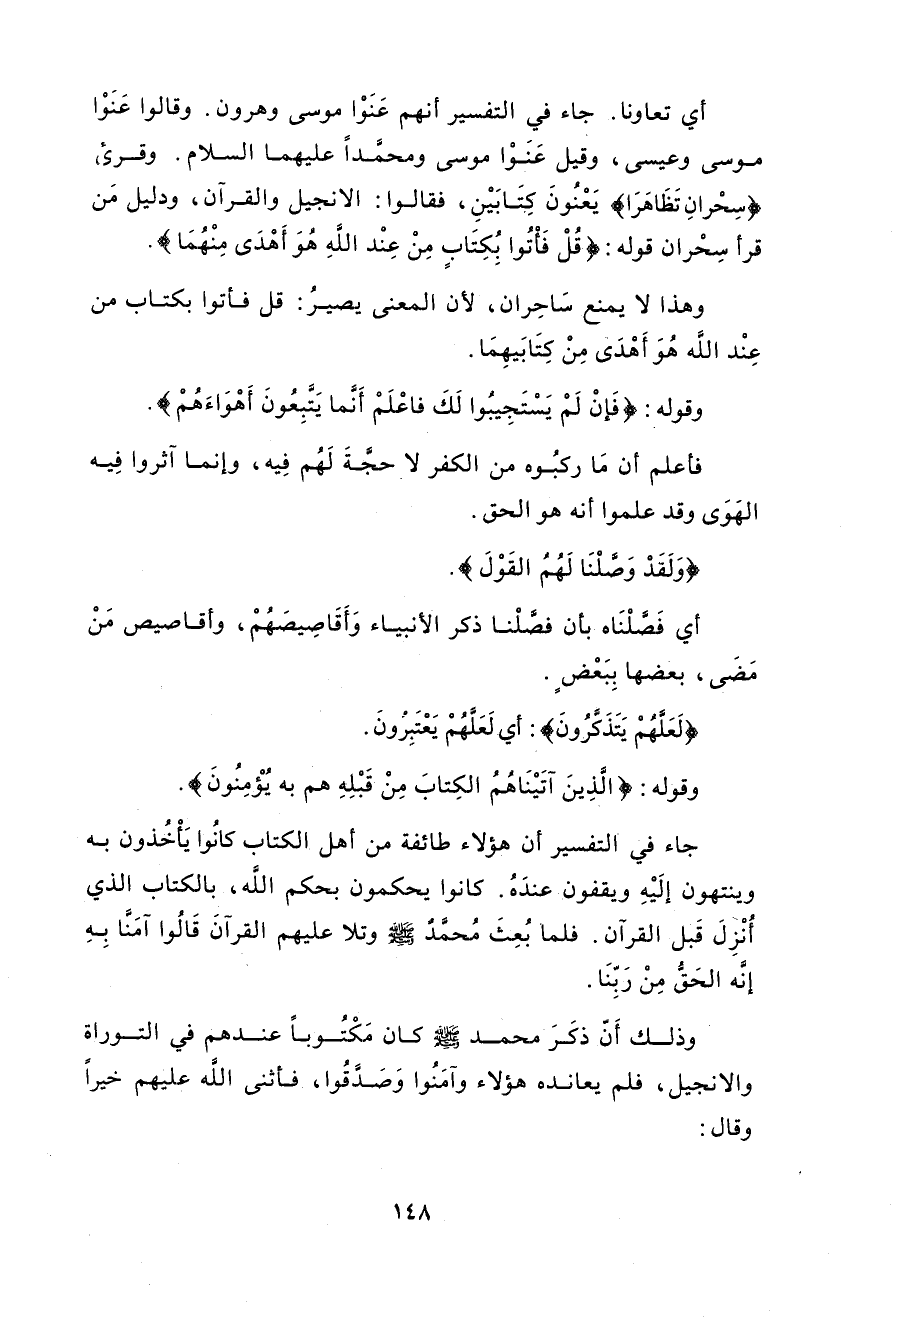 أي تعاونا. جاء في التفسير أنهم عَنَوْا موسى وهرون. وقالوا عَنَوْا
موسى وعيسى، وقيل عَنَوْا موسى ومحمَّداً عليهما السلام. وقرئ
﴿سِحْرانِ تَظَاهَرَا﴾ يَعْنُونَ كِتَابَيْنِ، فقالوا: الانجيل والقرآن، ودليل مَن
قرأ سِحْران قوله: ﴿قُلْ فَأْتُوا بُكِتَابٍ مِنْ عِنْد اللَّهِ هُوَ أَهْدَى مِنْهُمَا﴾.
وهذا لا يمنع سَاحِران، لأن المعنى يصيرُ: قل فأتوا بكتاب من
عِنْد اللَّه هُوَ أَهْدَى مِنْ كِتَابَيهِمَا.
وقوله: ﴿فَإِنْ لَمْ يَسْتَجِيبُوا لَكَ فاعْلَمْ أَنَّما يَتَّبِعُونَ أَهْوَاءَهُمْ﴾.
فأعلم أن مَا ركبُوه من الكفر لا حجَّةَ لَهُم فِيه، وإنما آثروا فِيه
الهَوَى وقد علموا أنه هو الحق.
﴿وَلَقَدْ وَصَّلْنَا لَهُمُ القَوْلَ﴾.
أي فَصَّلْنَاه بأن فصَّلْنا ذكر الأنبياء وَأَقَاصِيصَهُمْ، وأقاصيص مَنْ
مَضَى، بعضها بِبَعْضٍ.
﴿لَعَلَّهُمْ يَتَذَكَّرُونَ﴾: أي لَعَلَّهُمْ يَعْتَبِرُونَ.
وقوله: ﴿الَّذِينَ آتَيْنَاهُمُ الكِتابَ مِنْ قَبْلِهِ هم به يُؤْمِنُونَ﴾.
جاء في التفسير أن هؤلاء طائفة من أهل الكتاب كانُوا يَأْخُذون به
وينتهون إلَيْهِ ويقفون عندَهُ. كانوا يحكمون بحكم اللَّه، بالكتاب الذي
أُنْزِلَ قَبل القرآن. فلما بُعِثَ مُحمَّدٌ ﷺ وتلا عليهم القرآنَ قَالُوا آمَنَّا بِهِ
إنَّه الحَقُّ مِنْ رَبِّنَا.
وذلك أَنّ ذكَرَ محمد ﷺ كان مَكْتُوباً عندهم في التوراة
والانجيل، فلم يعانده هؤلاء وآمَنُوا وَصَدَّقُوا، فأثنى اللَّه عليهم خيراً
وقال:
١٤٨